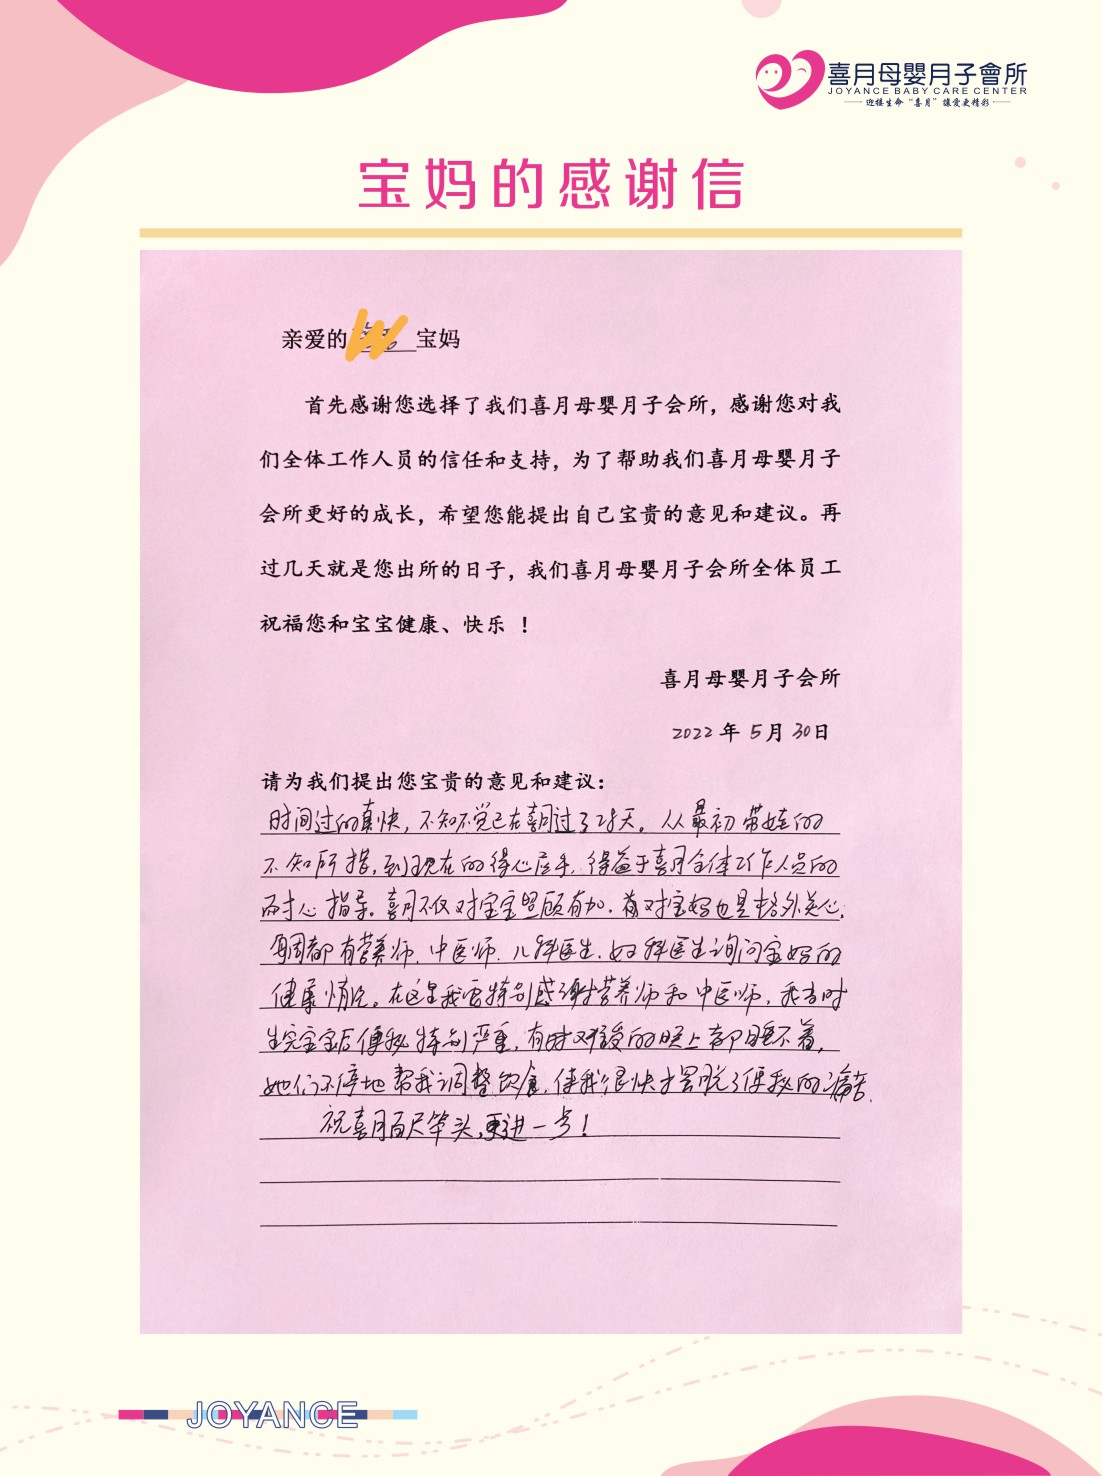 喜月母嬰月子會所
JOYANCE BABY CARE CENTER
迎接生命“喜月”讓愛更精彩
宝妈的感谢信
亲爱的 宝妈
首先感谢您选择了我们喜月母婴月子会所，感谢您对我
们全体工作人员的信任和支持，为了帮助我们喜月母婴月子
会所更好的成长，希望您能提出自己宝贵的意见和建议。再
过几天就是您出所的日子，我们喜月母婴月子会所全体员工
祝福您和宝宝健康、快乐 ！
喜月母婴月子会所
2022 年 5 月 30 日
请为我们提出您宝贵的意见和建议：
时间过的真快，不知不觉已在喜月过了28天。从最初带娃的
不知所措，到现在的得心应手，得益于喜月全体工作人员的
耐心指导。喜月不仅对宝宝照顾有加，对宝妈也是格外关心，
每周都有营养师、中医师、儿科医生、妇科医生询问宝妈的
健康情况。在这里我要特别感谢营养师和中医师，我当时
生完宝宝后便秘特别严重，有时难受的晚上都睡不着，
她们不停地帮我调整饮食，使我很快才摆脱了便秘的痛苦。
祝喜月百尺竿头，更进一步！
JOYANCE